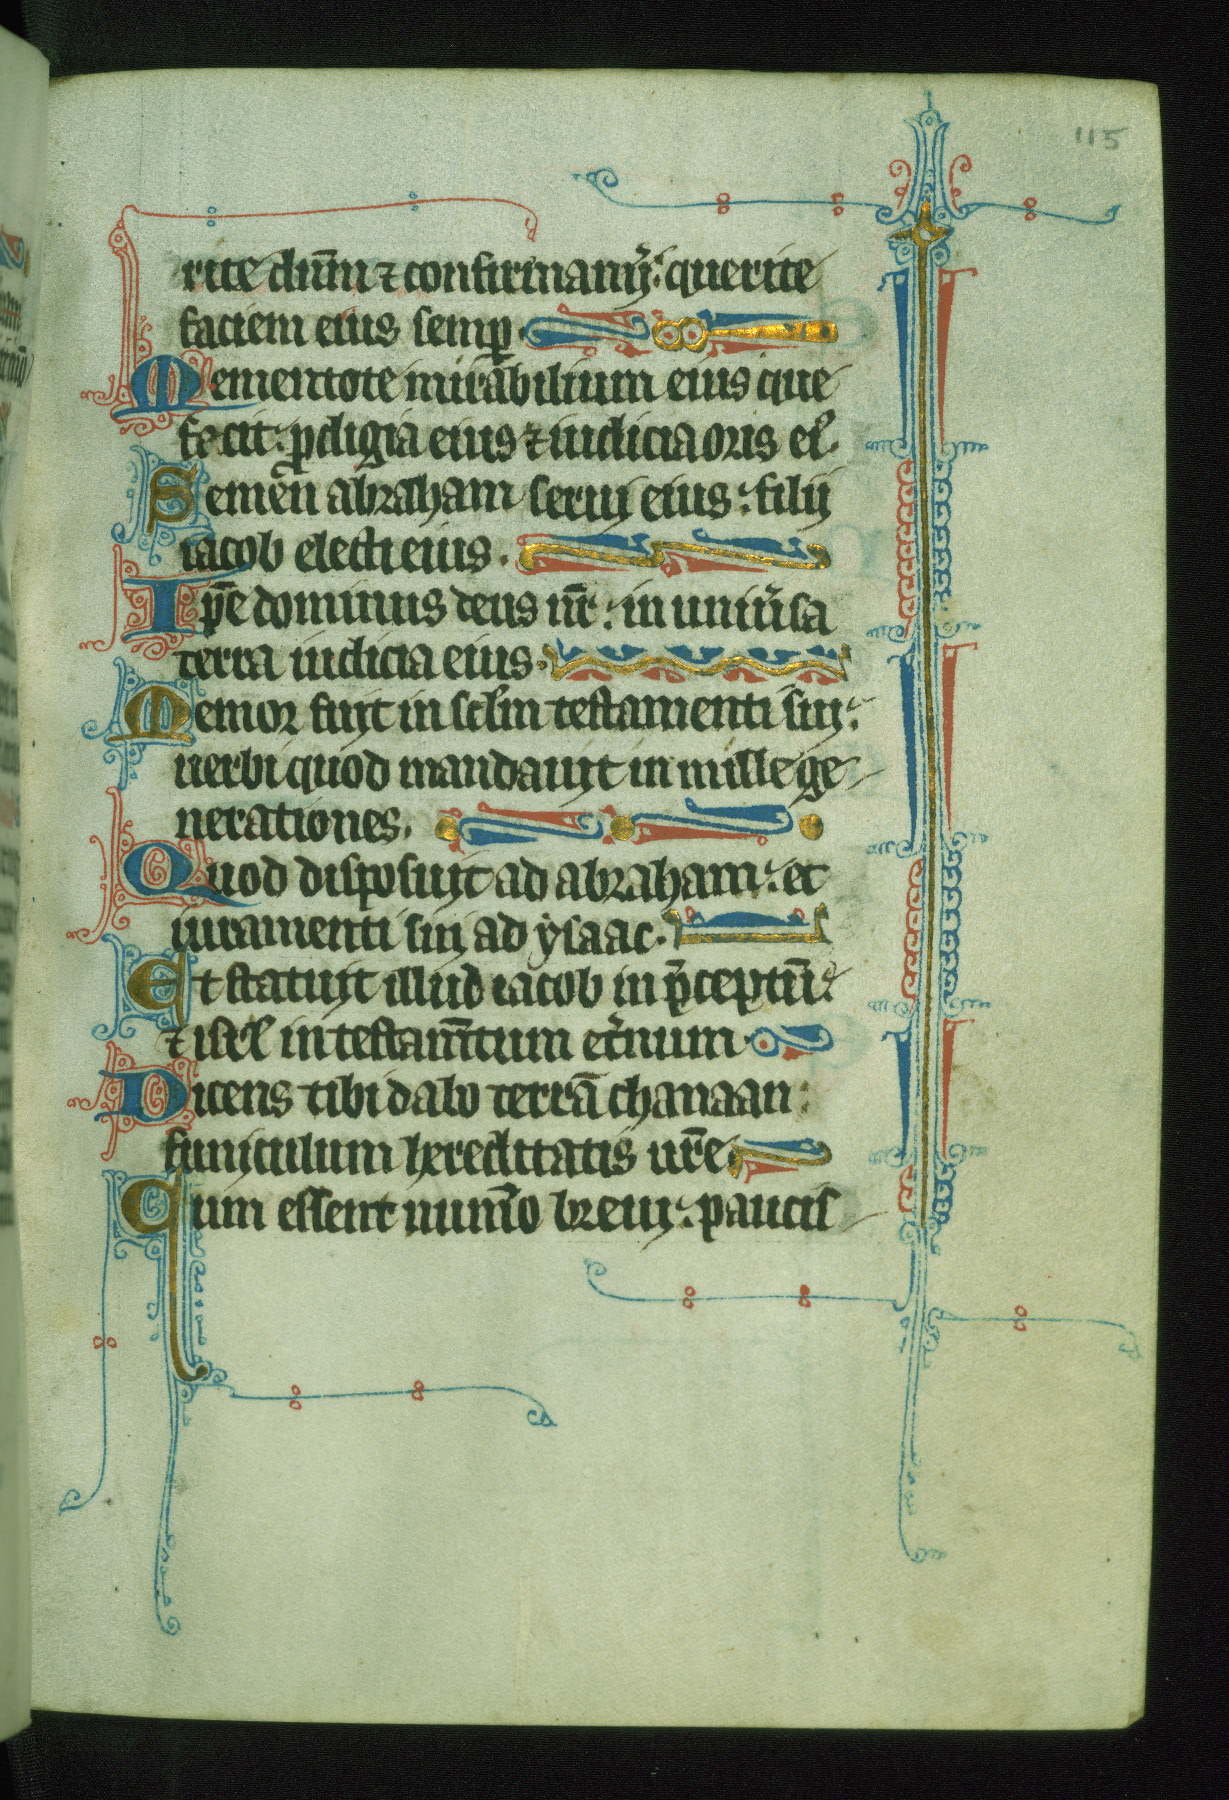 115
rite dūm ⁊ confirmamj̉: querite
faciem eius semꝑ.
Mementote mirabilium eius que
fecit: ꝓdigia eius ⁊ iudicia oris eiꝰ.
Semen abraham serui eius: filij
iacob electi eius.
Ip̄e dominus deus nr̄: in uniu̾sa
terra iudicia eius.
Memor fuit in sc̄lm testamenti sui:
uerbi quod mandauit in mille ge
nerationes.
Quod disposuit ad abraham: et
iuramenti sui ad ẏsaac.
Et statuit illud iacob in p̾ceptū:
⁊ isrl̄ in testam̄tum et̾num.
Dicens tibi dabo terrā chanaan:
funiculum hereditatis ur̄e
Cum essent num̾o breui: paucis